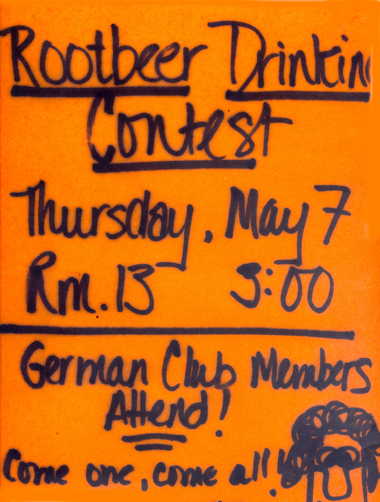 Rootbeer Drinkin
Contest
Thursday, May 7
Rm. 13 3:00
German Club Members
Attend!
Come one, come all!!